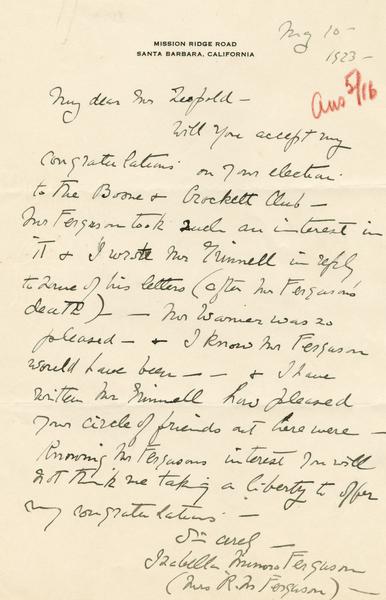 MISSION RIDGE ROAD
SANTA BARBARA, CALIFORNIA
May 10-
1923-
Ans 5/16
My dear Mr Leopold-
Will you accept my
congratulations on your election
to the Boone & Crockett Club-
Mr Ferguson took such an interest in
it & I wrote Mr Grinnell in reply
to one of his letters (after Mr Ferguson's
death)- Mr Warner was so
pleased- & I know Mr Ferguson
would have been- - & I have
written Mr Grinnell how pleased
your circle of friends out here were-
Knowing Mr Fergusons interest you will
not think me taking a liberty to offer
my congratulations-
Sincerely-
Isabella Munro Ferguson
(Mrs R. M Ferguson)-